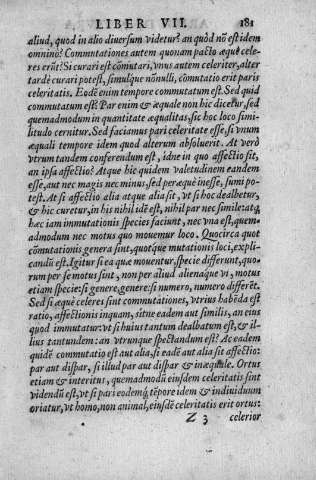 LIBER VII. 181
aliud, quod in alio diuersum videtur? an quòd nõ est idem
omnino? Commutationes autem quonam pacto æquè cele-
res erũt? Si curari est cõmutari, vnus autem celeriter, alter
tardè curari potest, simulque nõnulli, cõmutatio erit paris
celeritatis. Eodẽ enim tempore commutatum est. Sed quid
commutatum est? Par enim & æquale non hic dicetur, sed
quemadmodum in quantitate æqualitas, sic hoc loco simi-
litudo cernitur. Sed faciamus pari celeritate esse, si vnum
æquali tempore idem quod alterum absoluerit. At verò
vtrum tandem conferendum est, idne in quo affectio sit,
an ipsa affectio? Atque hîc quidem valetudinem eandem
esse, aut nec magis nec minus, sed peræquè inesse, sumi po-
test. At si affectio alia atque alia sit, vt si hoc dealbetur,
& hic curetur, in his nihil idẽ est, nihil par nec simile: atq;
hæc iam immutationis species faciunt, nec vna est, quem-
admodum nec motus quo mouemur loco. Quocirca quot
cõmutationis genera sint, quotq́ue mutationis loci, expli-
candũ est. Igitur si ea quæ mouentur, specie differunt, quo-
rum per se motus sint, non per aliud alienáque vi, motus
etiam specie: si genere, genere: si numero, numero differẽt.
Sed si æquè celeres sint commutationes, vtrius habẽda est
ratio, affectionis inquam, sitne eadem aut similis, an eius
quod immutatur: vt si huius tantum dealbatum est, & il-
lius tantundem: an vtrunque spectandum est? Ac eadem
quidẽ commutatio est aut alia, si eadẽ aut alia sit affectio:
par aut dispar, si illud par aut dispar & inæquale. Ortus
etiam & interitus, quemadmodũ eiusdem celeritatis sint
videndũ est, vt si pari eodemq́; tẽpore idem & indiuiduum
oriatur, vt homo, non animal, eiusdẽ celeritatis erit ortus:
Z 3 celerior